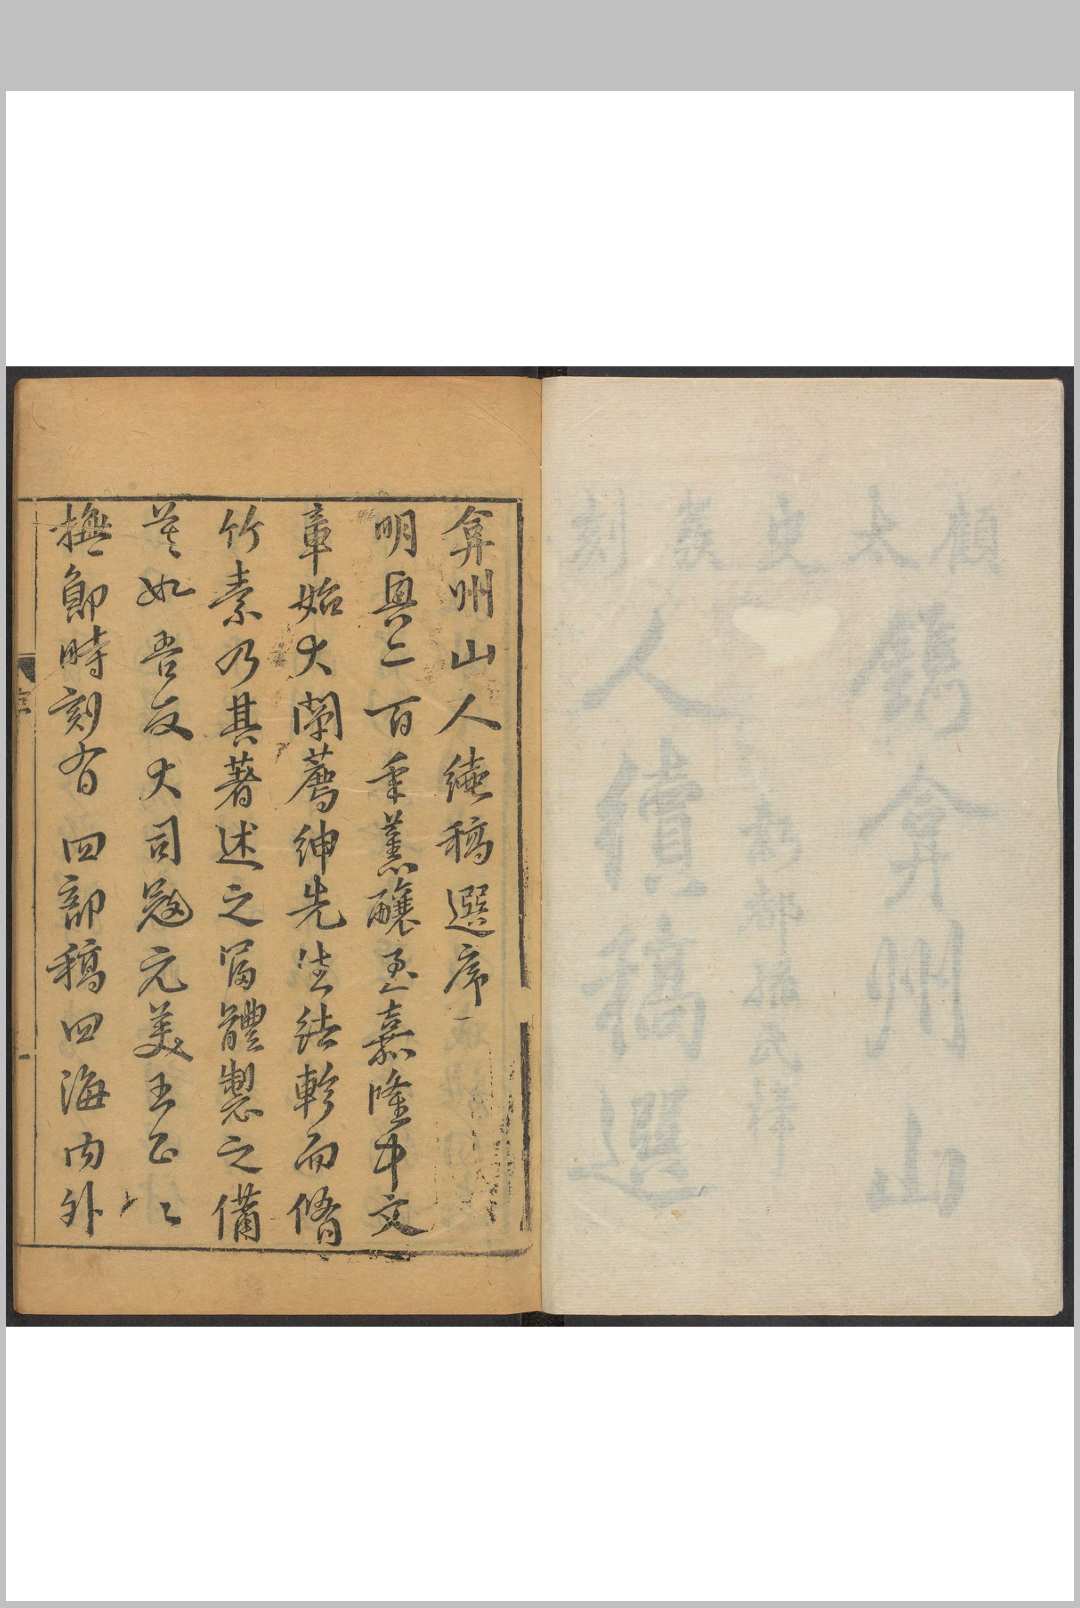 顧太史裴刻
鐫弇州山
人續稿選
弇州山人續稿選序
明興二百年薰釀至嘉隆中文
章始大闡薦紳先生結軫而脩
竹素乃其著述之富體製之備
莫如吾友大司寇元美王公公
撫鄖時刻有四部稿四海內外
序